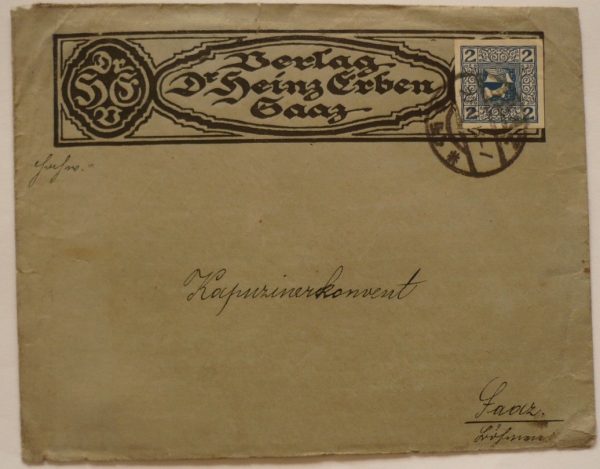 Dr
H E
V
Verlag
Dr Heinz Erben
Saaz
2 2
2 2
Kapuzinerkonvent
Saaz.
Böhmen.